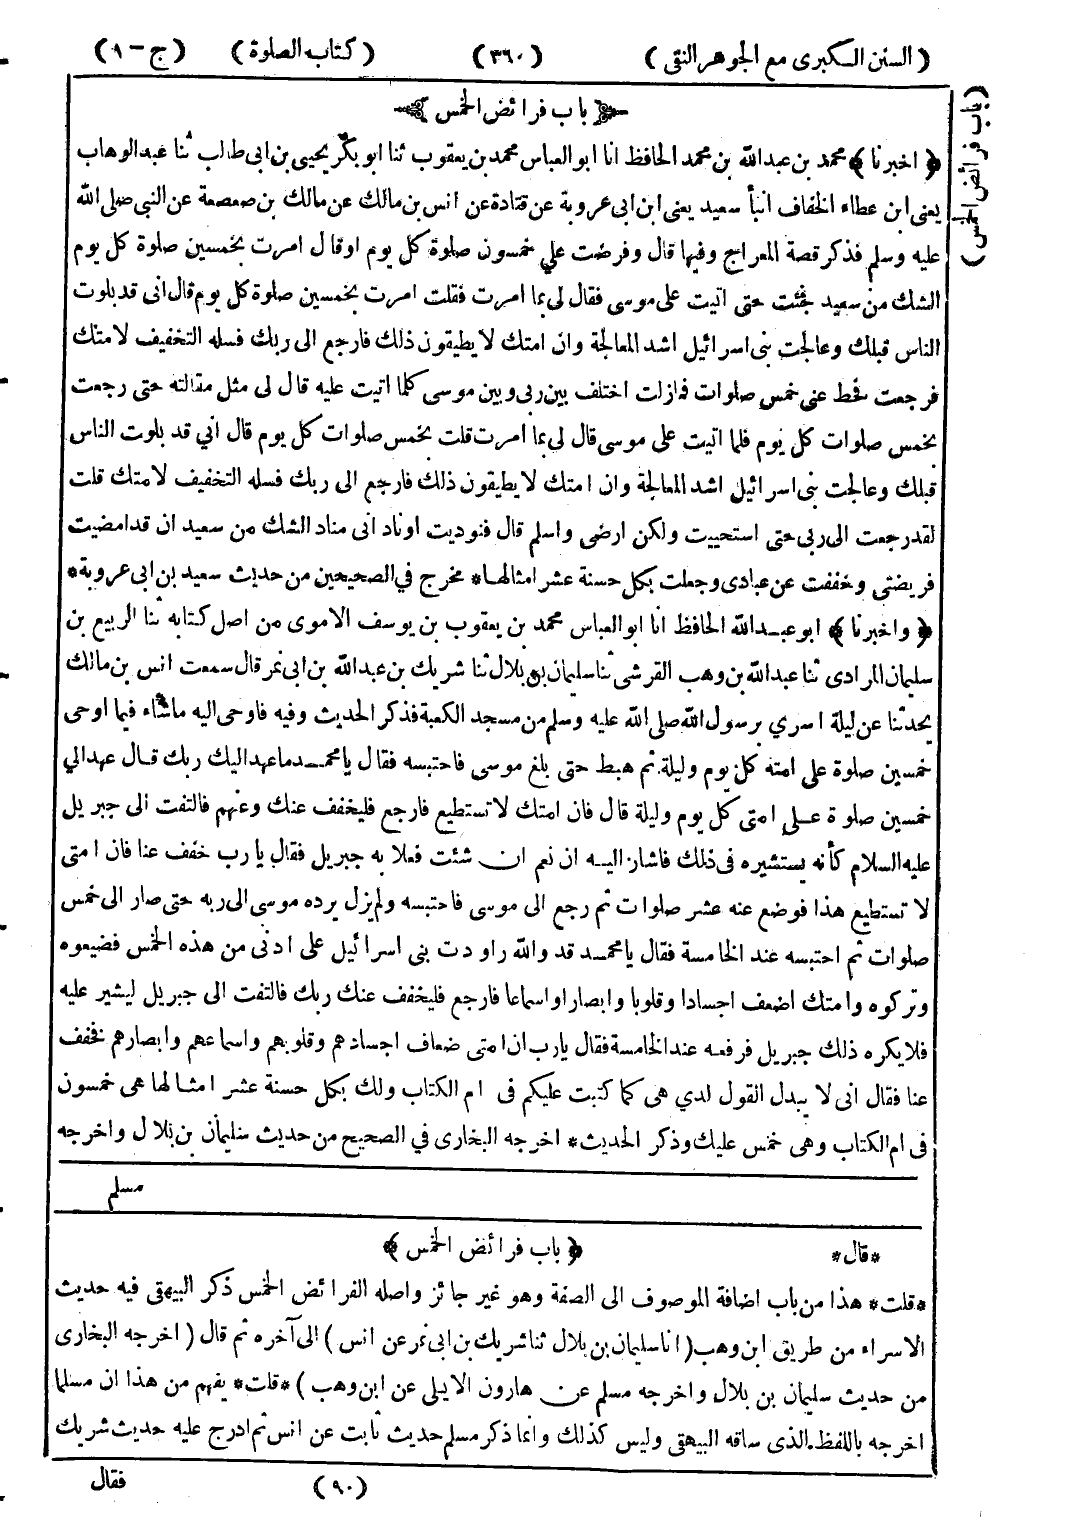 (السنن الكبرى مع الجوهر النقى) (٣٦٠) (كتاب الصلوة) (ج - ١)
(باب فرائض الخمس)
باب فرائض الخمس
﴿ اخبرنا ﴾ محمد بن عبدالله بن محمد الحافظ انا ابو العباس محمد بن يعقوب ثنا ابو بكر يحيى بن ابى طالب ثنا عبد الوهاب
يعنى ابن عطاء الخفاف انبأ سعيد يعنى ابن ابى عروبة عن قتادة عن انس بن مالك عن مالك بن صعصعة عن النبى صلى الله
عليه وسلم فذكر قصة المعراج وفيها قال وفرضت على خمسون صلوة كل يوم اوقال امرت بخمسين صلوة كل يوم
الشك من سعيد فجئت حتى اتيت على موسى فقال لى بما امرت فقلت امرت بخمسين صلوة كل يوم قال انى قد بلوت
الناس قبلك وعالجت بنى اسرائيل اشد المعالجة وان امتك لا يطيقون ذلك فارجع الى ربك فسله التخفيف لامتك
فرجعت فحط عنى خمس صلوات فمازلت اختلف بين ربى وبين موسى كلما اتيت عليه قال لى مثل مقالته حتى رجعت
بخمس صلوات كل يوم فلما اتيت على موسى قال لى بما امرت قلت بخمس صلوات كل يوم قال أني قد بلوت الناس
قبلك وعالجت بنى اسرائيل اشد المعالجة وان امتك لا يطيقون ذلك فارجع الى ربك فسله التخفيف لامتك قلت
لقد رجعت الى ربى حتى استحييت ولكن ارضى واسلم قال فنوديت اوناد انى مناد الشك من سعيد ان قد امضيت
فريضتى وخففت عن عبادى وجعلت بكل حسنة عشر امثالها* مخرج في الصحيحين من حديث سعيد بن ابى عروبة*
﴿ واخبرنا ﴾ ابو عبد الله الحافظ انا ابو العباس محمد بن يعقوب بن يوسف الاموى من اصل كتابه ثنا الربيع بن
سليمان المرادى ثنا عبدالله بن وهب القرشى ثنا سليمان بن بلال ثنا شريك بن عبدالله بن ابى نمر قال سمعت انس بن مالك
يحدثنا عن ليلة اسري برسول الله صلى الله عليه وسلم من مسجد الكعبة فذكر الحديث وفيه فاوحى اليه ماشاء فيما اوحى
خمسين صلوة على امته كل يوم وليلة ثم هبط حتى بلغ موسى فاحتبسه فقال يا محمد ماعهد اليك ربك قال عهد الي
خمسين صلوة على امتى كل يوم وليلة قال فان امتك لا تستطيع فارجع فليخفف عنك وعنهم فالتفت الى جبريل
عليه السلام كأنه يستشيره فى ذلك فاشار اليه ان نعم ان شئت فعلا به جبريل فقال يا رب خفف عنا فان امتى
لا تستطيع هذا فوضع عنه عشر صلوات ثم رجع الى موسى فاحتبسه ولم يزل يرده موسى الى ربه حتى صار الى خمس
صلوات ثم احتبسه عند الخامسة فقال يا محمد قد والله راودت بنى اسرائيل على ادنى من هذه الخمس فضيعوه
وتركوه وامتك اضعف اجسادا وقلوبا وابصارا واسماعا فارجع فليخفف عنك ربك فالتفت الى جبريل ليشير عليه
فلا يكره ذلك جبريل فرفعه عند الخامسة فقال يا رب ان امتى ضعاف اجسادهم وقلوبهم واسماعهم وابصارهم فخفف
عنا فقال انى لا يبدل القول لدي هى كما كتبت عليكم فى ام الكتاب ولك بكل حسنة عشر امثالها هى خمسون
فى ام الكتاب وهى خمس عليك وذكر الحديث* اخرجه البخارى في الصحيح من حديث سليمان بن بلال واخرجه
مسلم
*قال* ﴿ باب فرائض الخمس ﴾
*قلت* هذا من باب اضافة الموصوف الى الصفة وهو غير جائز واصله الفرائض الخمس ذكر البيهقى فيه حديث
الاسراء من طريق ابن وهب (انا سليمان بن بلال ثنا شريك بن ابى نمر عن انس) الى آخره ثم قال (اخرجه البخارى
من حديث سليمان بن بلال واخرجه مسلم عن هارون الايلى عن ابن وهب) *قلت* يفهم من هذا ان مسلما
اخرجه باللفظ الذى ساقه البيهقى وليس كذلك وانما ذكر مسلم حديث ثابت عن انس ثم ادرج عليه حديث شريك
(٩٠) فقال